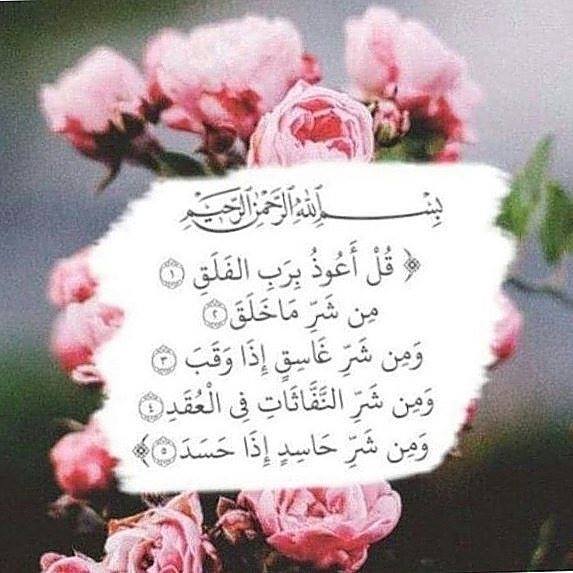 بِسْمِ ٱللَّهِ ٱلرَّحْمَٰنِ ٱلرَّحِيمِ
﴿ قُلْ أَعُوذُ بِرَبِ الفَلَقِ ١
مِن شَرِّ مَاخَلَقَ ٢
وَمِن شَرِّ غَاسِقٍ إِذَا وَقَبَ ٣
وَمِن شَرِّ النَّفَّاثَاتِ فِى الْعُقَدِ ٤
وَمِن شَرِّ حَاسِدٍ إِذَا حَسَدَ ٥ ﴾